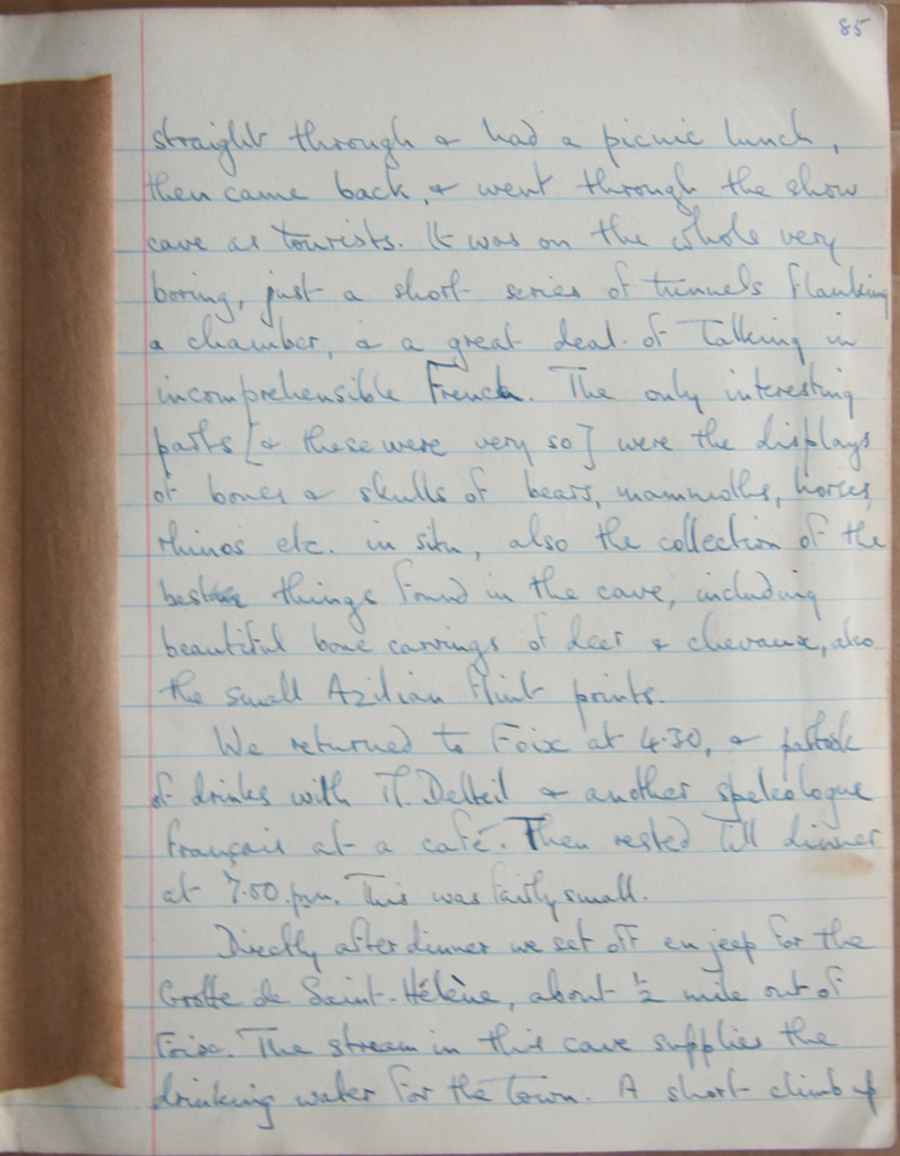 85
straight through & had a picnic lunch,
then came back, & went through the show
cave as tourists. It was on the whole very
boring, just a short series of tunnels flanking
a chamber, & a great deal of talking in
incomprehensible French. The only interesting
parts [& these were very so] were the displays
of bones & skulls of bears, mammoths, horses,
rhinos etc. in situ, also the collection of the
best things found in the cave, including
beautiful bone carvings of deer & chevaux, also
the small Azilian flint points.
We returned to Foix at 4.30, & partook
of drinks with M. Delteil & another speleologue
français at a café. Then rested till dinner
at 7.50 p.m. This was fairly small.
Directly after dinner we set off en jeep for the
Grotte de Saint-Hélène, about ½ mile out of
Foix. The stream in this cave supplies the
drinking water for the town. A short climb up